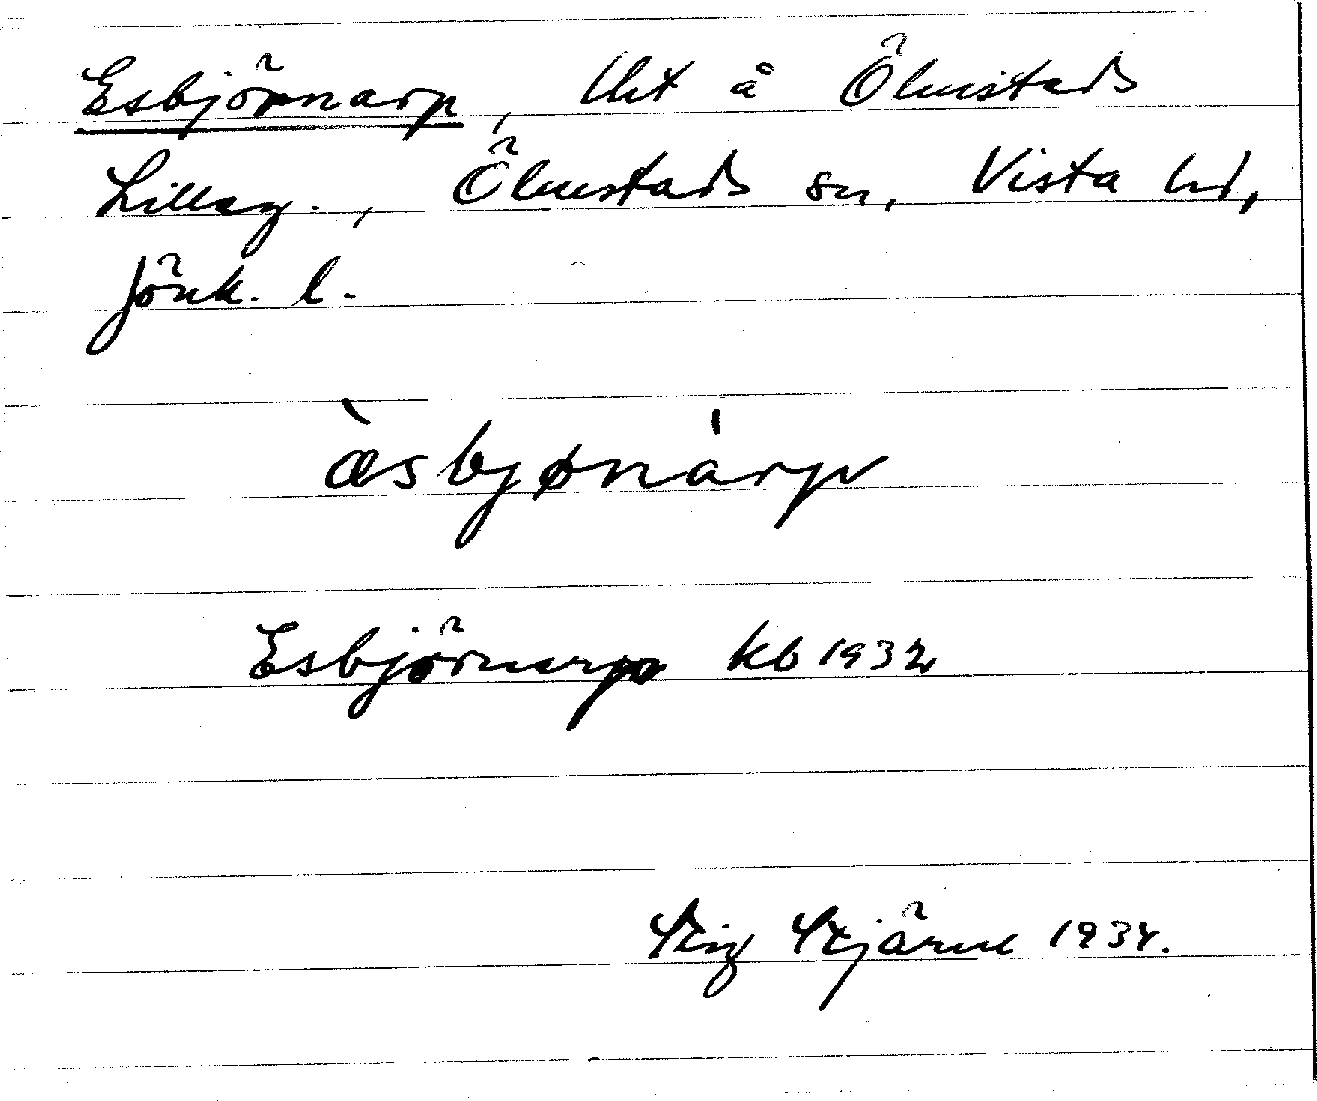 Esbjörnarp, Uht å Ölmstads
Lilleg., Ölmstads sn, Vista hd,
Jönk. l.
æ̀sbjønár̀p
Esbjörnarp kb 1932
Stig Stjärne 1934.